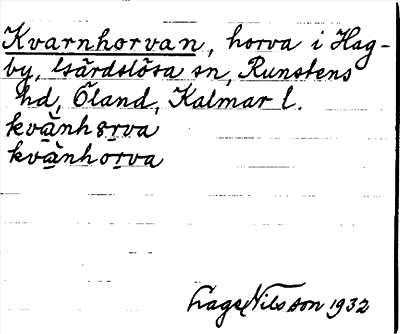 Kvarnhorvan, horva i Hag-
by, Gärdslösa sn, Runstens
hd, Öland, Kalmar l.
kvànhꞷrva
kvànhorva
Nilsson 1932